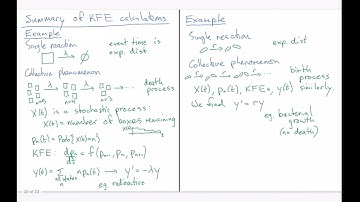 Summary of KFE calculations
Example
Single reaction
λ
∅
event time is
exp. dist.
Collective phenomenon
λ λ λ ...
death
process
n=3 n=2
X(t) is a stochastic process:
X(t) = number of boxes remaining
pₙ(t) = Prob{X(t)=n}
KFE: dpₙ/dt = f(pₙ₋₁, pₙ, pₙ₊₁)
y(t) = Σ n pₙ(t) → y' = -λy
all states n
eg. radioactive
Example
Single reaction
exp. dist
Collective phenomenon
...
birth
process
X(t), pₙ(t), KFEs, y(t) similarly.
We find y' = ry
eg. bacterial
growth
(no death)